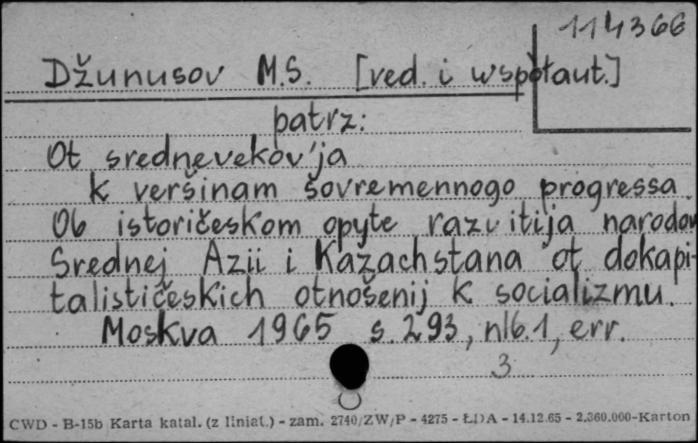 114366
Džunusov M.S. [red. i współaut.]
patrz:
Ot srednevekov'ja
k veršinam sovremennogo progressa.
Ob istoričeskom opyte razvitija narodov
Srednej Azii i Kazachstana ot dokapi-
talističeskich otnošenij k socializmu.
Moskva 1965 s. 293, nlb. 1, err.
3
CWD - B-15b Karta katal. (z liniat.) - zam. 2740/ZW/P - 4275 - ŁDA - 14.12.65 - 2.360.000-Karton